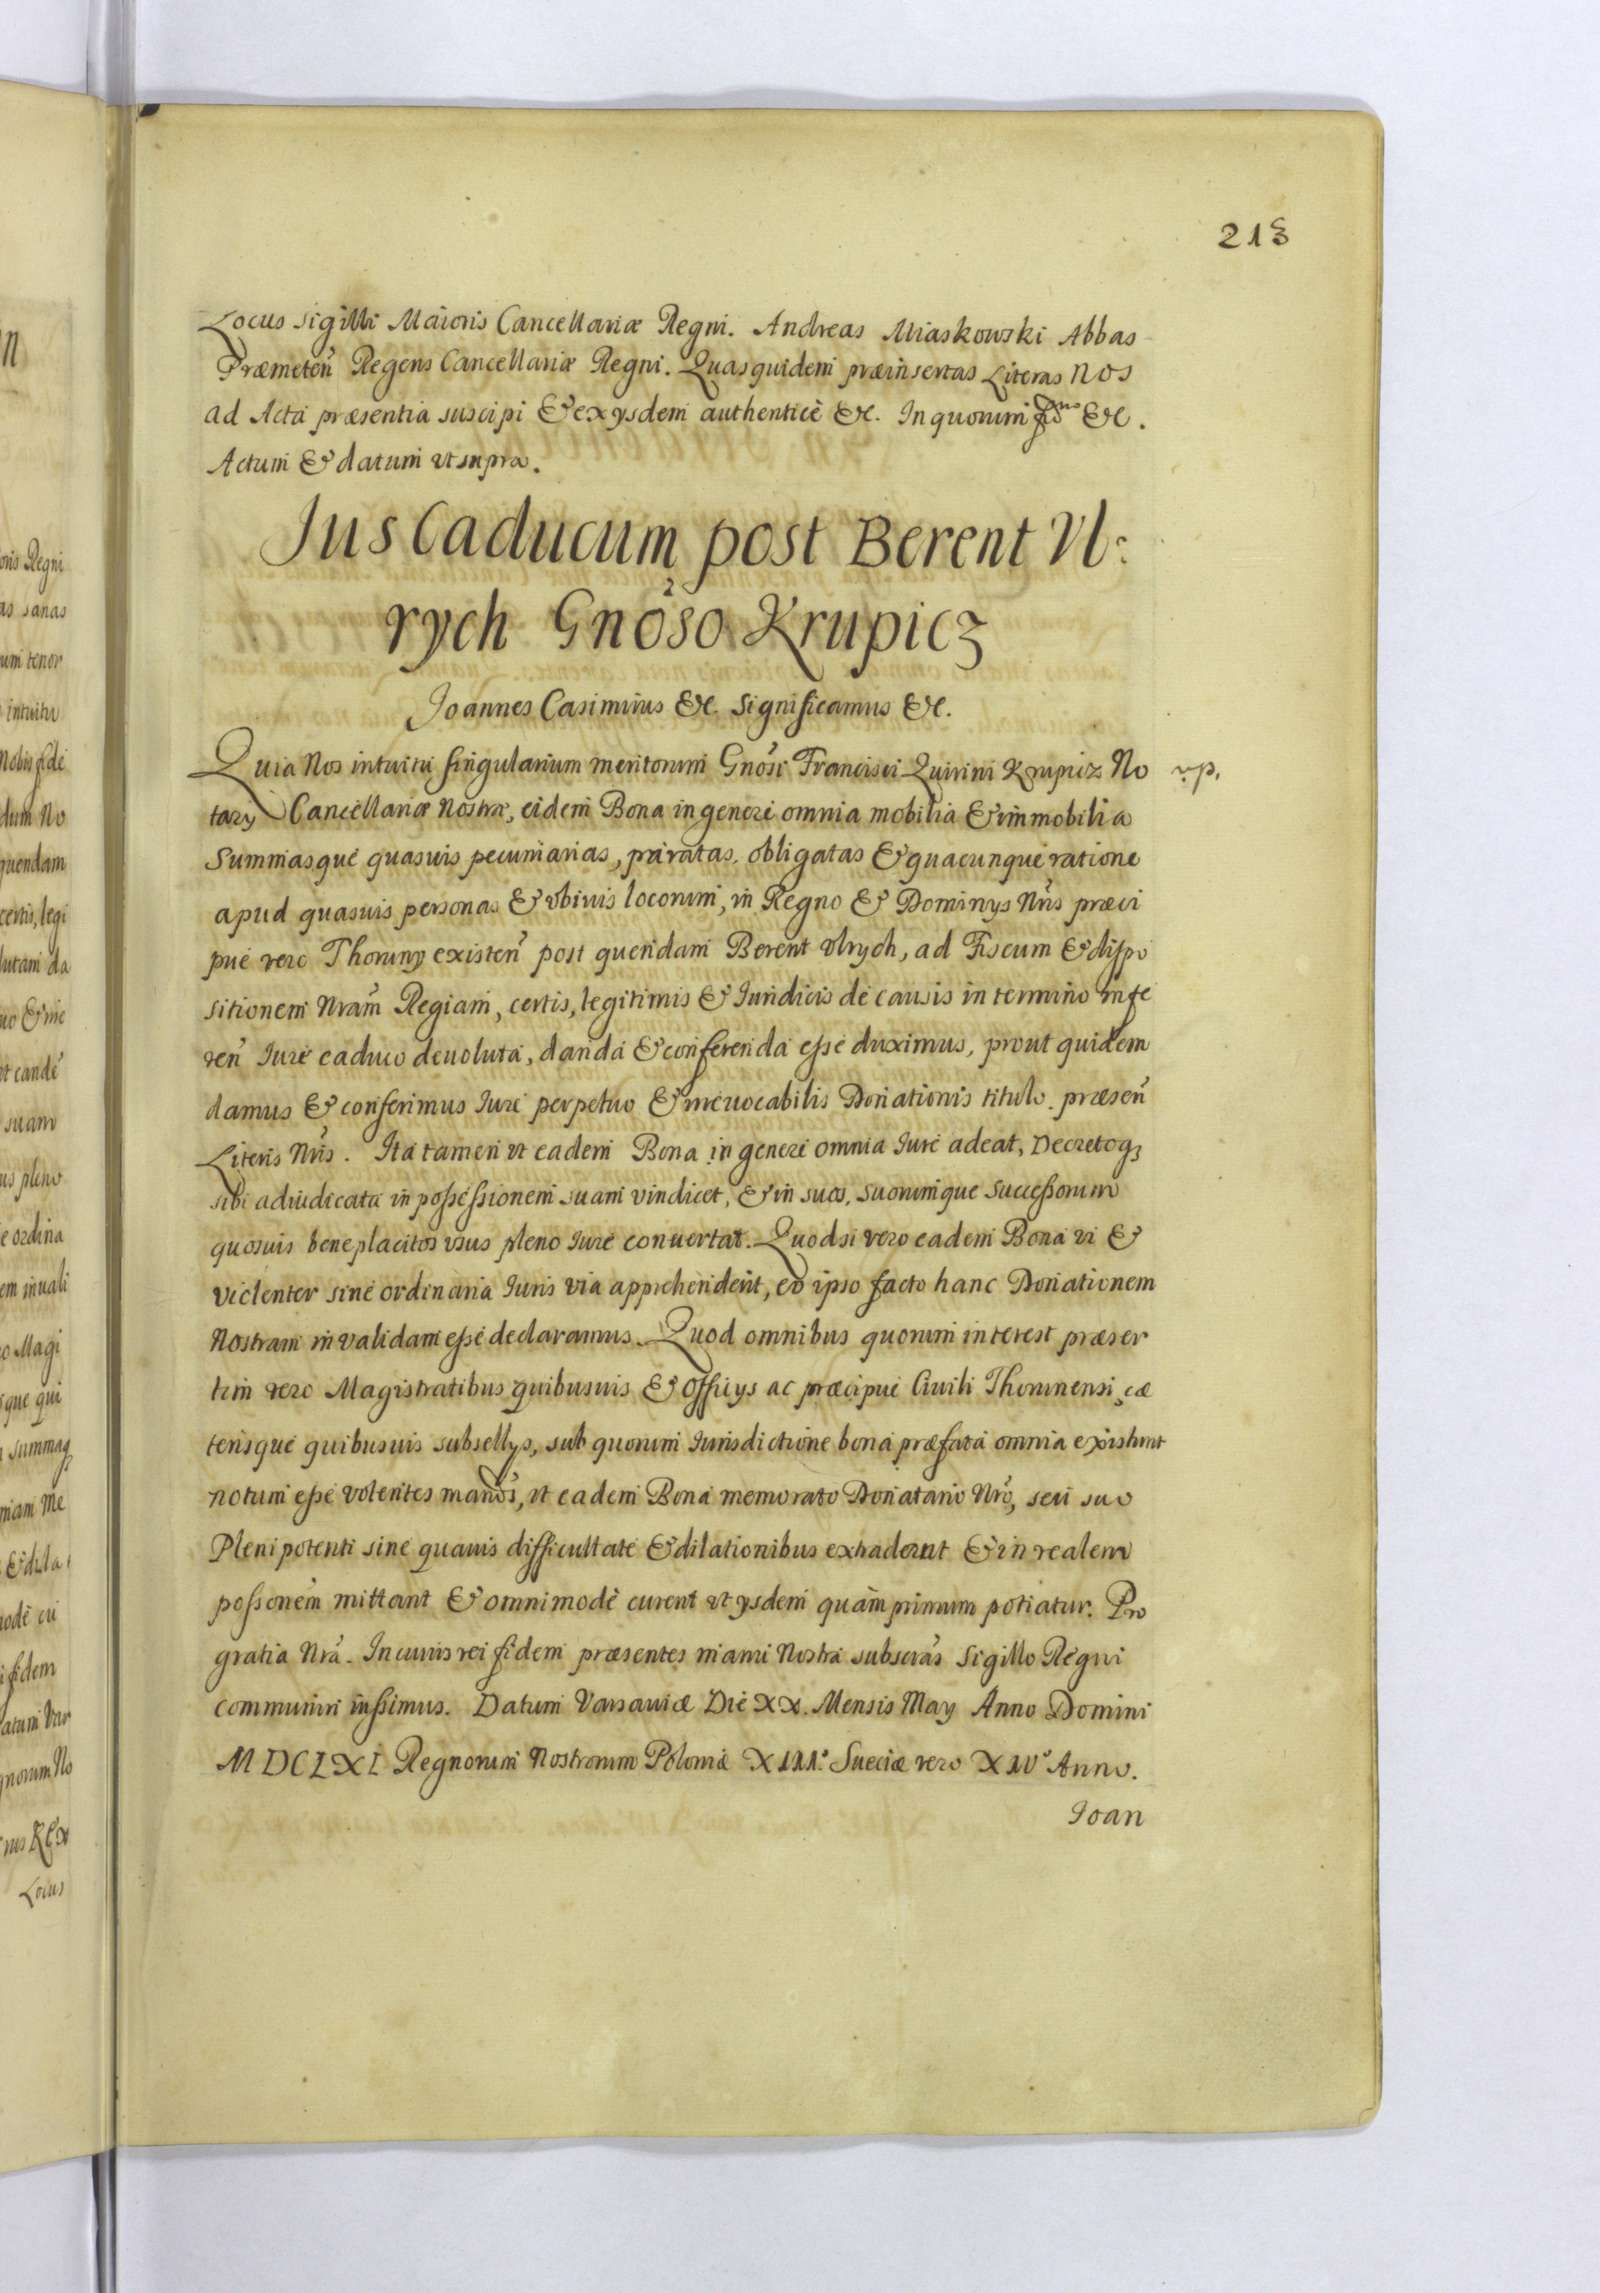 213
Locus sigilli Maioris Cancellariæ Regni. Andreas Miaskowski Abbas
Præmeteñ Regens Cancellariæ Regni. Quas quidem præinsertas Literas Nos
ad Acta præsentia suscipi & ex ysdem authenticè &c. In quorum &c.
Actum & datum ut supra.
Ius Caducum post Berent Vl:
rych Gnoso Krupicz
Joannes Casimirus &c. Significamus &c.
Quia Nos intuitu singularium meritorum Gnosi Francisci Quirini Krupicz No
tary Cancellariæ Nostræ, eidem Bona in genere omnia mobilia & immobilia
Summasque quasuis pecuniarias, paratas, obligatas & quacunque ratione
apud quasuis personas & vbiuis locorum, in Regno & Dominys Nris præci
pué vero Thoruny existeñ post quendam Berent Vlrych, ad Fiscum & dispo
sitionem Nram Regiam, certis, legitimis & Iuridicis de causis in termino infe
reñ Iure caduco deuoluta, danda & conferenda esse duximus, prout quidem
damus & conferimus Iure perpetuo & irreuocabilis Donationis titulo præseñ
Literis Nris. Ita tamen vt eadem Bona in genere omnia Iure adeat, Decretoq;
sibi adiudicata in possessionem suam vindicet, & in suos, suorumque Successorum
quosuis beneplacitos vsus pleno Iure conuertat. Quodsi vero eadem Bona vi &
violenter sine ordinaria Iuris via apprehenderit, eo ipso facto hanc Donationem
Nostram inualidam esse declaramus. Quod omnibus quorum interest præser
tim vero Magistratibus quibusuis & Officys ac præcipué Ciuili Thorunensi cæ
terisque quibusuis subsellys, sub quorum Iurisdictione bona præfata omnia existunt
notum esse volentes mandõs, vt eadem Bona memorato Donatario Nro, seu suo
Plenipotenti sine quauis difficultate & dilationibus extradant & in realem
possonem mittant & omnimodè curent vt ysdem quàm primum potiatur. Pro
gratia Nra. In cuius rei fidem præsentes manu Nostra subscras Sigillo Regni
communiri iussimus. Datum Varsauiæ Die XX. Mensis May Anno Domini
MDCLXI Regnorum Nostrorum Poloniæ XIII.° Sueciæ vero XIV° Anno.
Ioan